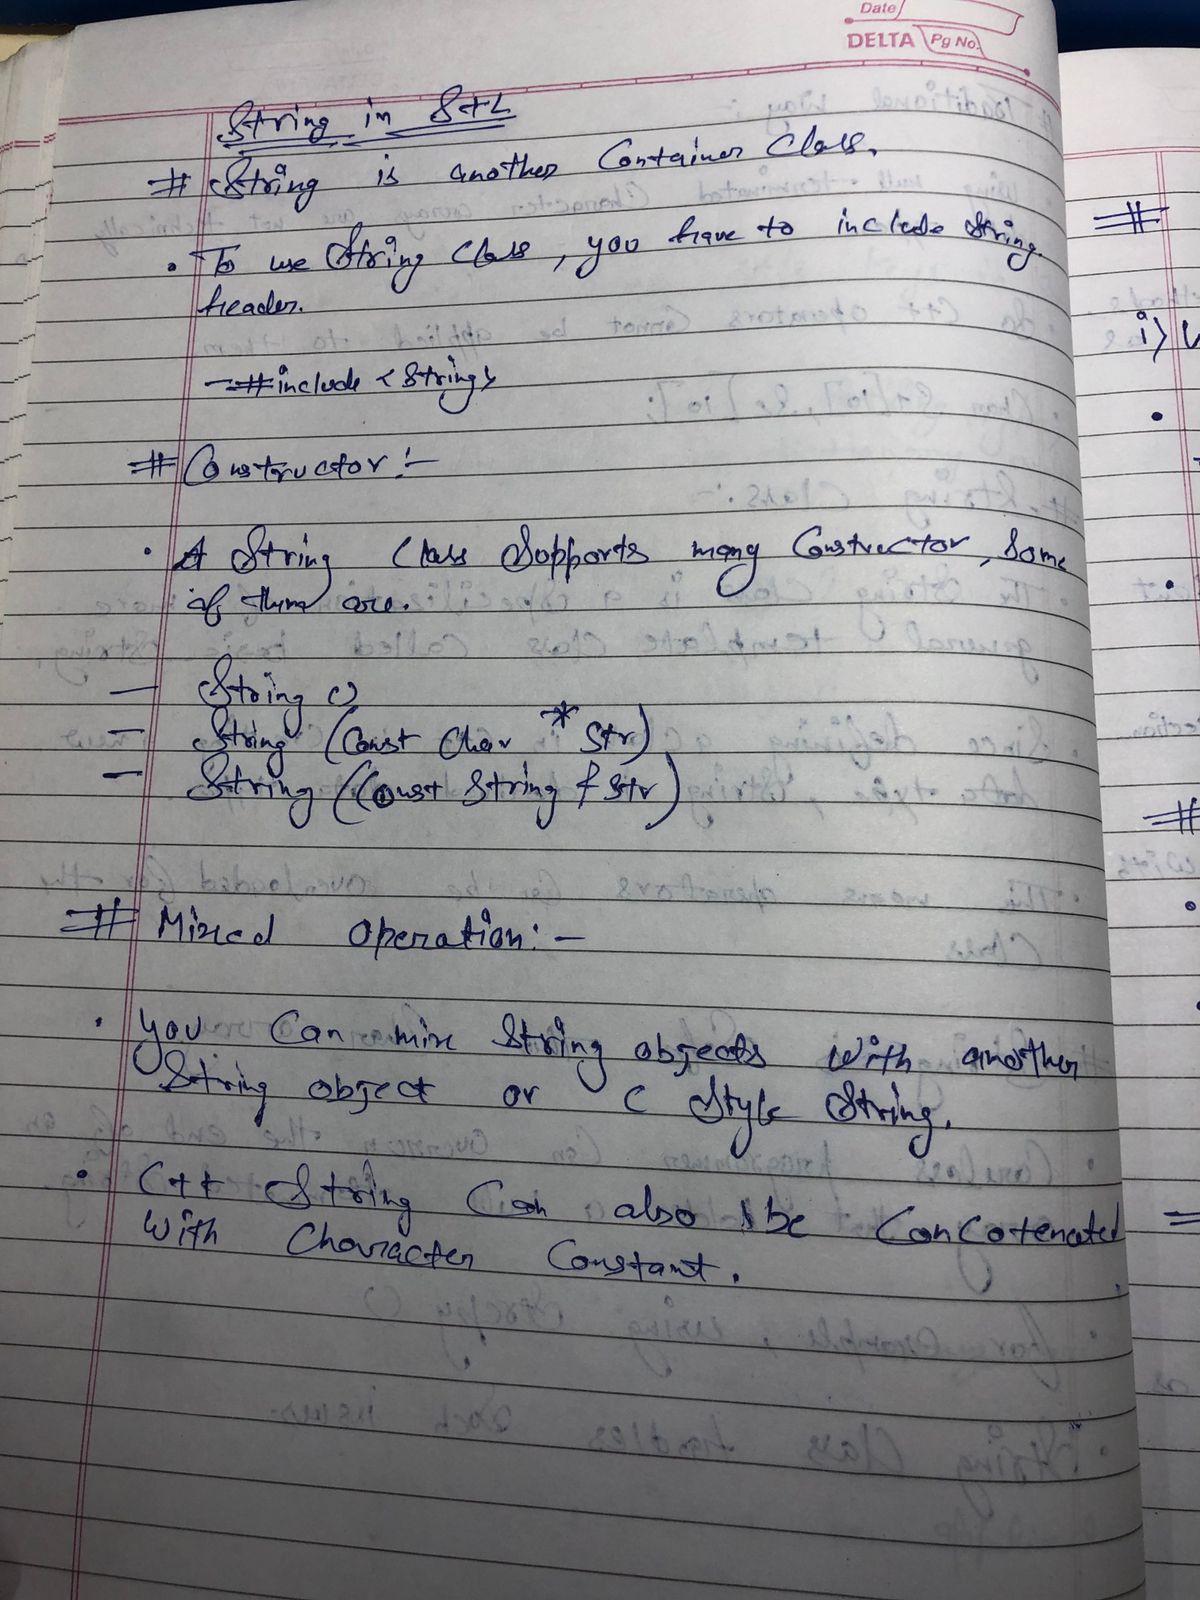 Date
DELTA Pg No.
String in STL
# String is another Container Class.
• To use String Class, you have to include String
header.
- #include <String>
# Constructor :-
• A String Class Supports many Constructor, Some
of them are.
- String ()
- String (Const Char * Str)
- String (Const String & Str)
# Mixed Operation :-
• you Can mix String objects with another
String object or C Style String.
• C++ String Can also be Concatenated
with Character Constant.
#
i)
#